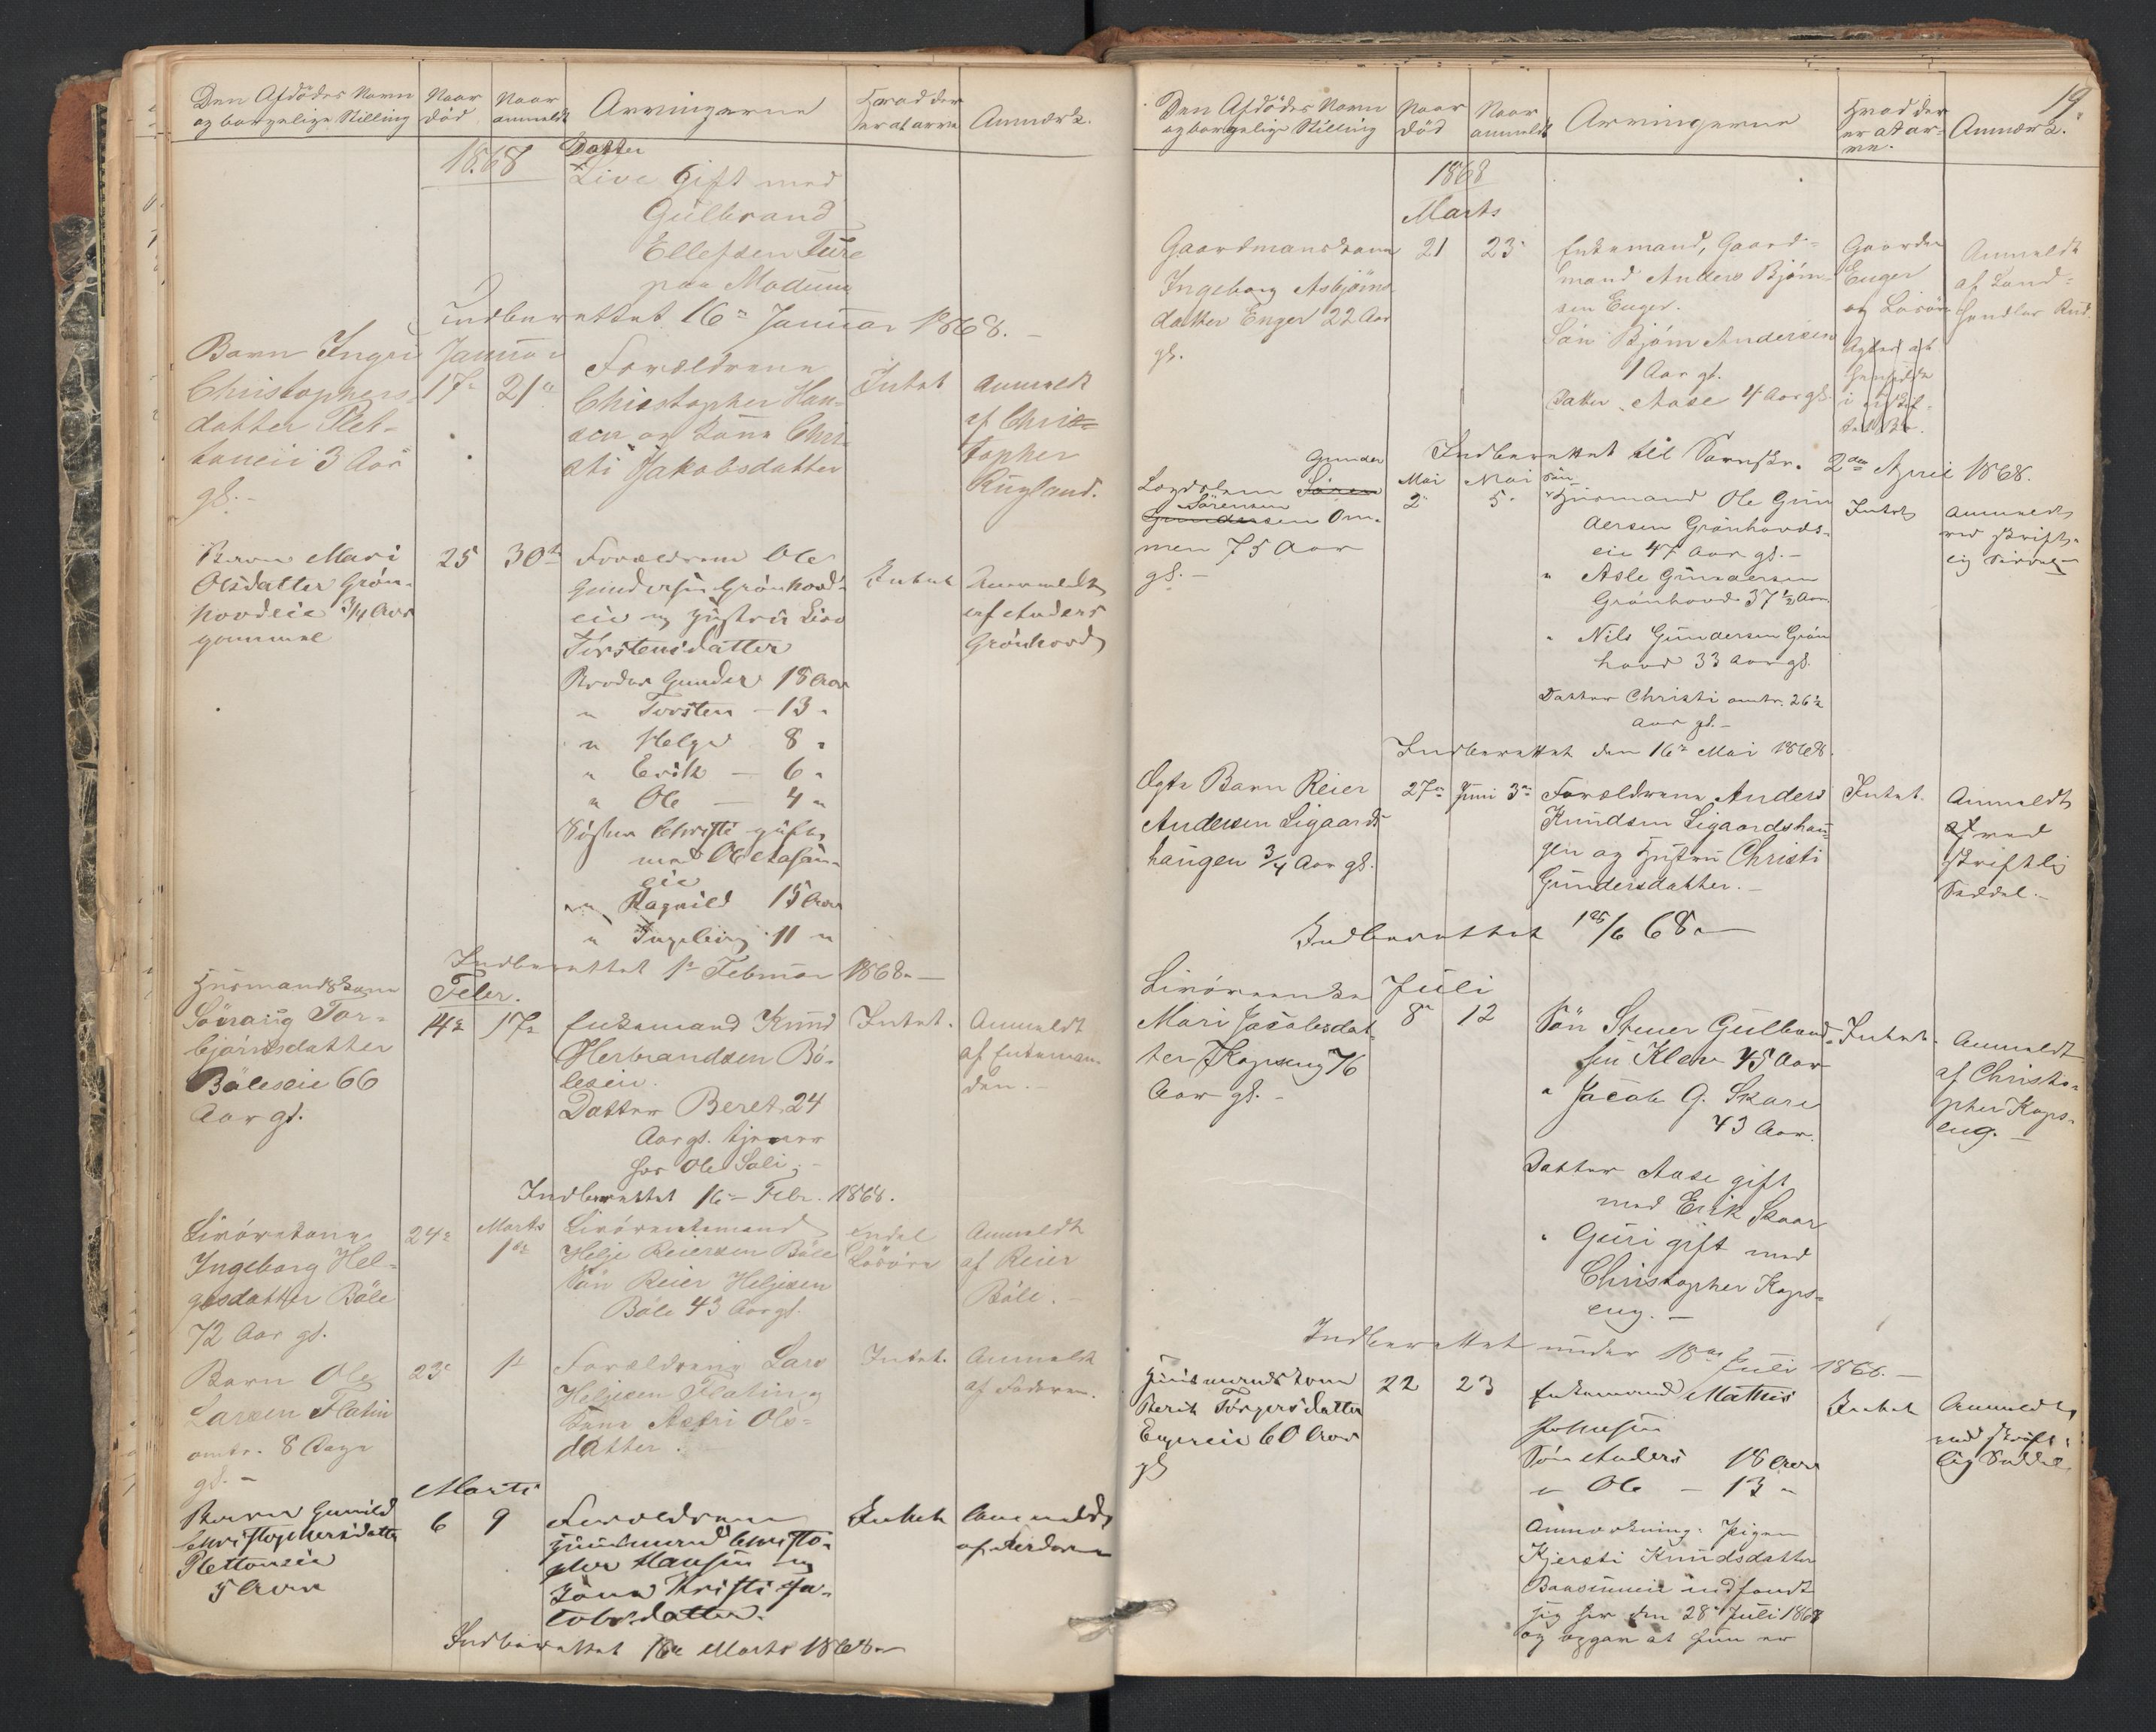 Den Afdödes Navn
og borgerlige Stilling
Naar
död
Naar
anmeldt
Arvingerne
Hvad der
er at arve
Anmærk.
1868
Datter
Live Gift med
Gulbrand
Ellefsen Ture
paa Modum
Indberettet 16de Januar 1868. –
Barn Ingri
Christophers-
datter Plet-
taneie 3 Aar
gl. –
Januar
17de
21de
Forældrene
Christopher Han-
sen og Kone Chri-
sti Jakobsdatter
Intet
Anmeldt
af Chris-
topher
Rugland.
Barn Mari
Olsdatter Grøn-
hovdeie 3/4 Aar
gammel
25
30te
Forældrene Ole
Gundersen Grönhovd-
eie og Hustru Live
Torstensdatter
Broder Gunder 18 Aar
" Torsten – 13 "
" Helge 8 "
" Erik – 6 "
" Ole – 4 "
Söster Christi gift
med Ole
eie
" Ragnild 15 Aar
" Ingeborg 11 "
Intet
Anmeldt
af Anders
Grönhovd
Indberettet 1ste Februar 1868. –
Husmandskone
Sönaug Tor-
björnsdatter
Böleseie 66
Aar gl.
Febr.
14de
17de
Enkemand Knud
Herbrandsen Bö-
leseie.
Datter Beret 24
Aar gl. tjener
hos Ole Sali. –
Intet.
Anmeldt
af Enkeman-
den. –
Indberettet 16de Febr. 1868.
Livörekone
Ingeborg Hel-
gesdatter Böle
72 Aar gl.
24de
Marts
1ste
Livöremand
Helje Reiersen Böle
Sön Reier Heljesen
Böle 43 Aar gl.
endel
Lösöre
Anmeldt
af Reier
Böle. –
Barn Ole
Larsen Flatin
omtr. 8 Dage
gl. –
23de
1ste
Forældrene Lars
Heljesen Flatin og
Kone Astri Ols-
datter.
Intet.
Anmeldt
af Faderen.
Marts
Barn Gunild
Christophersdatter
Plettaneie
5 Aar
6
9
Forældrene
Husmand Christo-
pher Hansen og
Kone Kristi Ja-
cobsdatter.
Intet
Anmeldt
af Faderen
Indberettet 16de Marts 1868. –
19.
Den Afdödes Navn
og borgerlige Stilling
Naar
död
Naar
anmeldt
Arvingerne
Hvad der
er at ar-
ve.
Anmærk.
1868
Marts
Gaardmanskone
Ingeborg Asbjörns-
datter Enger 22 Aar
gl.
21
23
Enkemand, Gaard-
mand Anders Bjørn-
sen Enger.
Sön Björn Andersen
1 Aar gl.
Datter Aase 4 Aar gl.
Gaarden
Enger
og Lösöre
Agter at
hensidde
i uskif-
Anmeldt
af Land-
handler Rud.
Indberettet til Sorenskr. 2den April 1868.
Gunder
Lægdslem Sören
Sörensen
Gundersen Om-
men 75 Aar
gl. –
Mai
2
Mai
5
Sön
Husmand Ole Gun-
dersen Grönhovds-
eie 47 Aar gl. –
" Asle Gundersen
Grönhovd 37 1/2 Aar
" Nils Gundersen Grön-
hovd 33 Aar gl.
Datter Christi omtr. 26 1/2
Aar gl. –
Intet
Anmeldt
ved skrift-
lig Seddel
Indberettet den 16de Mai 1868.
Ægte Barn Reier
Andersen Ligaards-
haugen 3/4 Aar gl.
27de
Juni 3de
Forældrene Anders
Knudsen Ligaardshau-
gen og Hustru Christi
Gundersdatter. –
Intet.
Anmeldt
af ved
skriftlig
Seddel. –
Indberettet 15/6 68. –
Livöreenke
Mari Jacobsdat-
ter Kopseng 76
Aar gl. –
Juli
8de
12
Sön Stener Gulbrand-
sen Kleve 45 Aar
" Jacob G. Skare
43 Aar.
Datter Aase gift
med Erik Skaar
" Guri gift med
Christopher Kops-
eng. –
Intet.
Anmeldt
af Christo-
pher Kops-
eng. –
Indberettet under 18de Juli 1868. –
Husmandskone
Berit Torgersdatter
Engereie 60 Aar
gl
22
23
Enkemand Mathis
Johnsen
Sön Anders 18 Aar
" Ole – 13 "
Anmærkning: Pigen
Kjersti Knudsdatter
indfandt
sig her den 28de Juli 1868
og opgav at hun er
Intet
Anmeldt
ved skrift-
lig Seddel